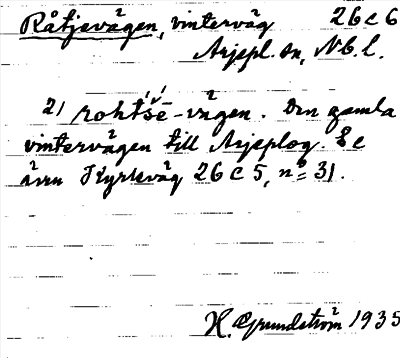 Råtjevägen, vinterväg 26 C 6
Arjepl. sn, Nb. l.
2/ rohtšē-vägen. Den gamla
vintervägen till Arjeplog. Se
även Kyrkväg 26 C 5, nº 31.
H. Grundström 1935